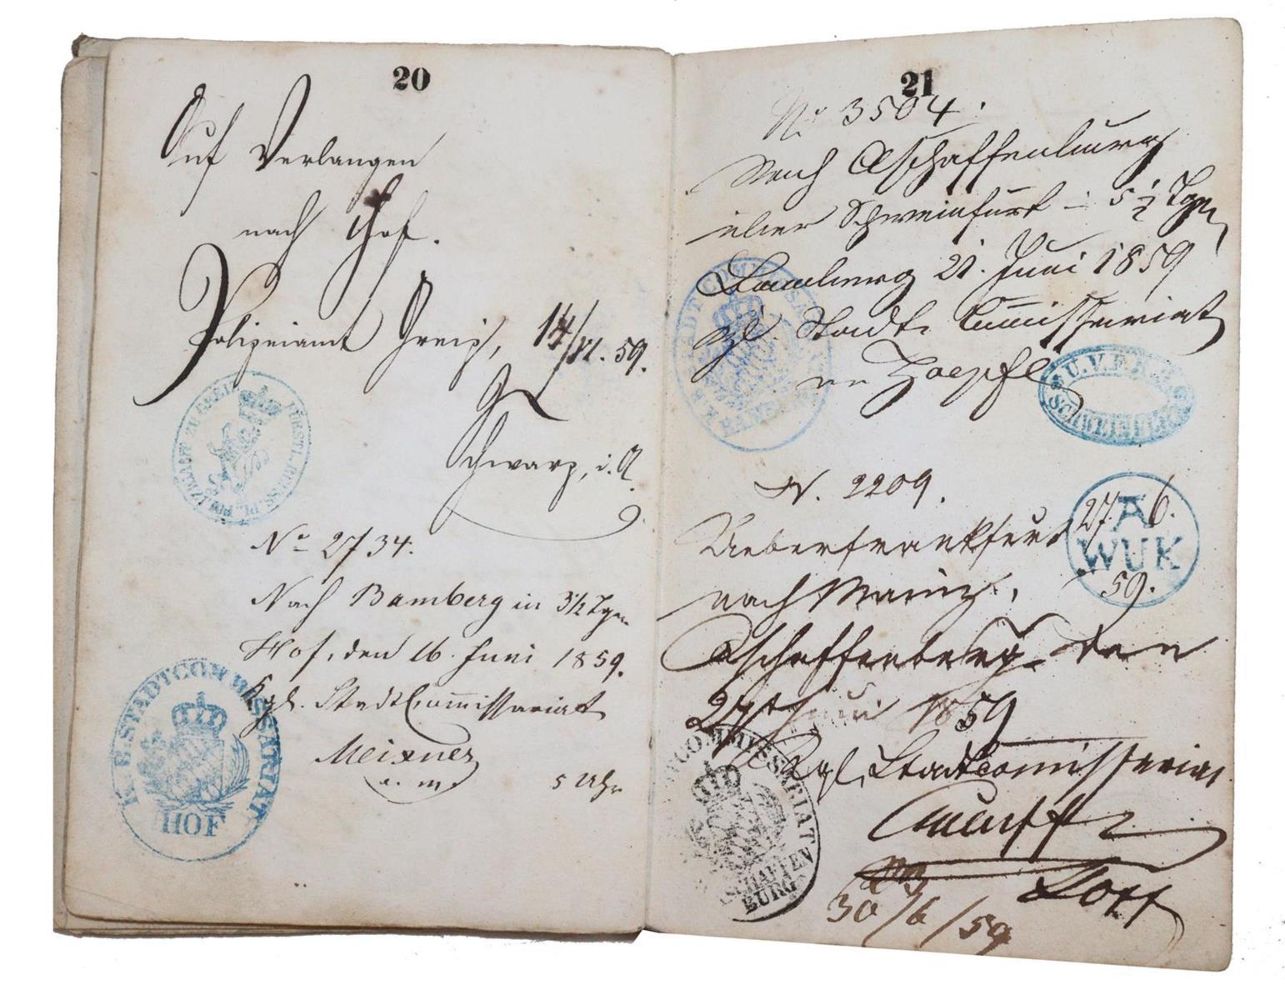 20
Auf Verlangen
nach Hof.
Polizeiamt Greiz, 14/VI. 59.
Schwarz, i. A.
FÜRSTL. REUSS. PL. POLIZEIAMT ZU GREIZ
No 2734.
Nach Bamberg in 3½ Tgn
Hof, den 16. Juni 1859.
Kgl. StadtCom̅issariat
Meixner
5 Uhr
K. B. STADTCOMMISSARIAT
HOF
21
No 3504.
Nach Aschaffenburg
über Schweinfurt – 5½ Tgn
Bamberg 21. Juni 1859
Kgl. Stadt Com̅issariat
STADTCOMMISSARIAT
BAMBERG
SCHWEINFURT
N. 2209.
Ueber Frankfurt
nach Mainz.
27. 6.
59.
A
WUK
Aschaffenburg den
27t Juni 1859
Kgl. Stadtcommissariat
STADTCOMMISSARIAT
ASCHAFFEN
BURG
30/6/59